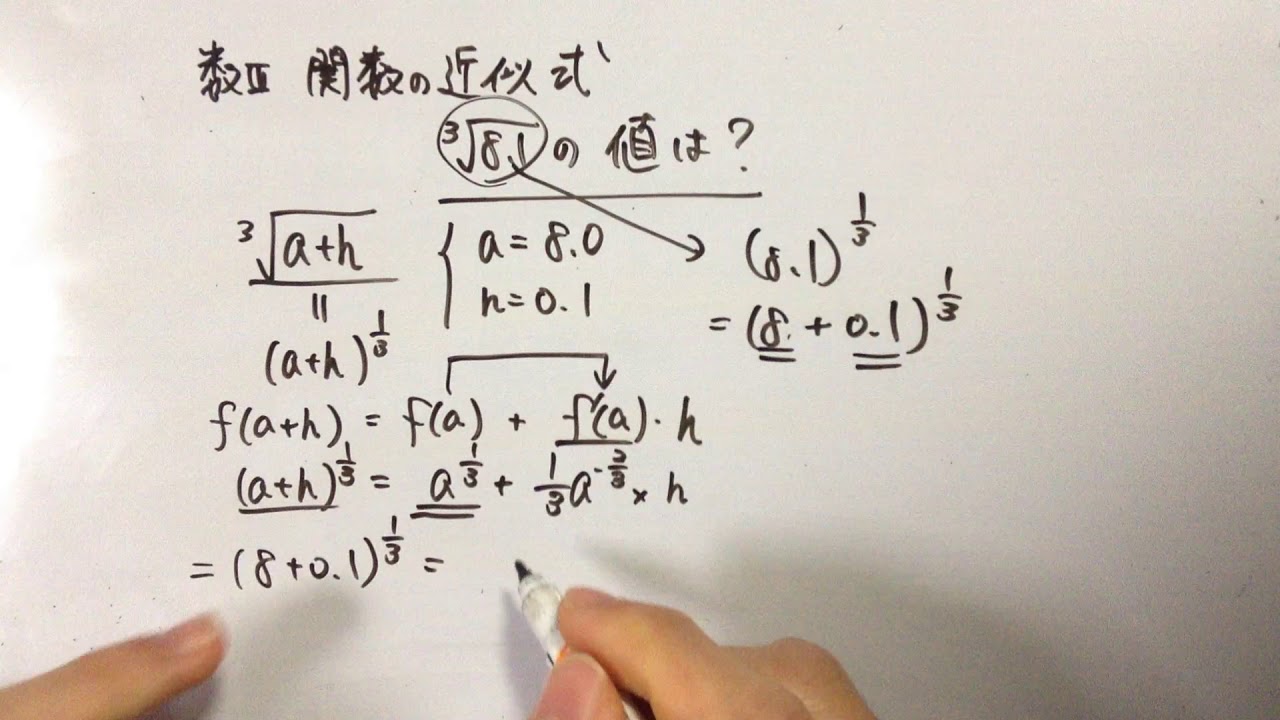 数III 関数の近似式
³√8.1 の値は?
³√a+h
=
(a+h)^1/3
{ a = 8.0
h = 0.1
(8.1)^1/3
= (8 + 0.1)^1/3
f(a+h) = f(a) + f'(a)・h
(a+h)^1/3 = a^1/3 + 1/3 a^-2/3 × h
= (8+0.1)^1/3 =